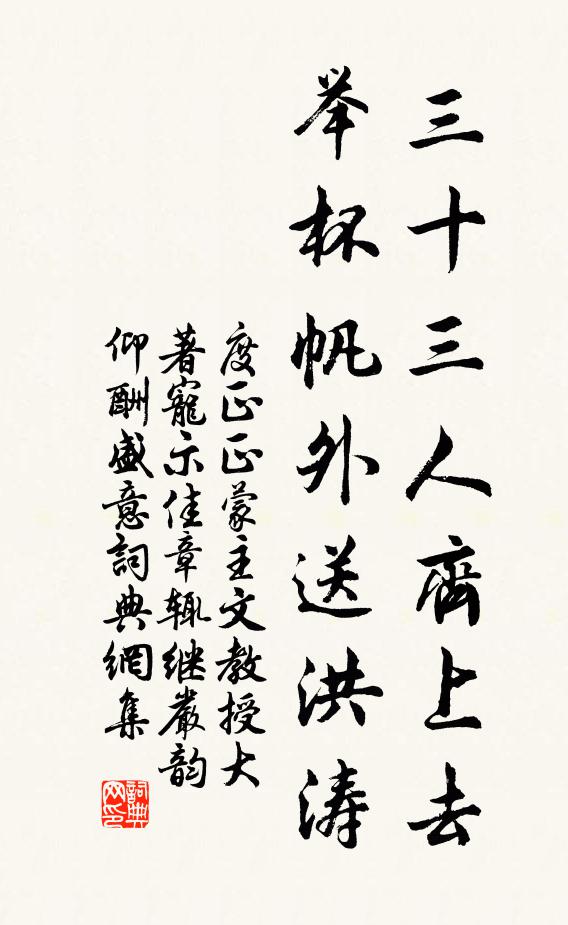 三十三人齊上去
举杯帆外送洪涛
度正正蒙主文教授大
著寵示佳章輒继嚴韵
仰酬盛意詞典網集
詞典网印